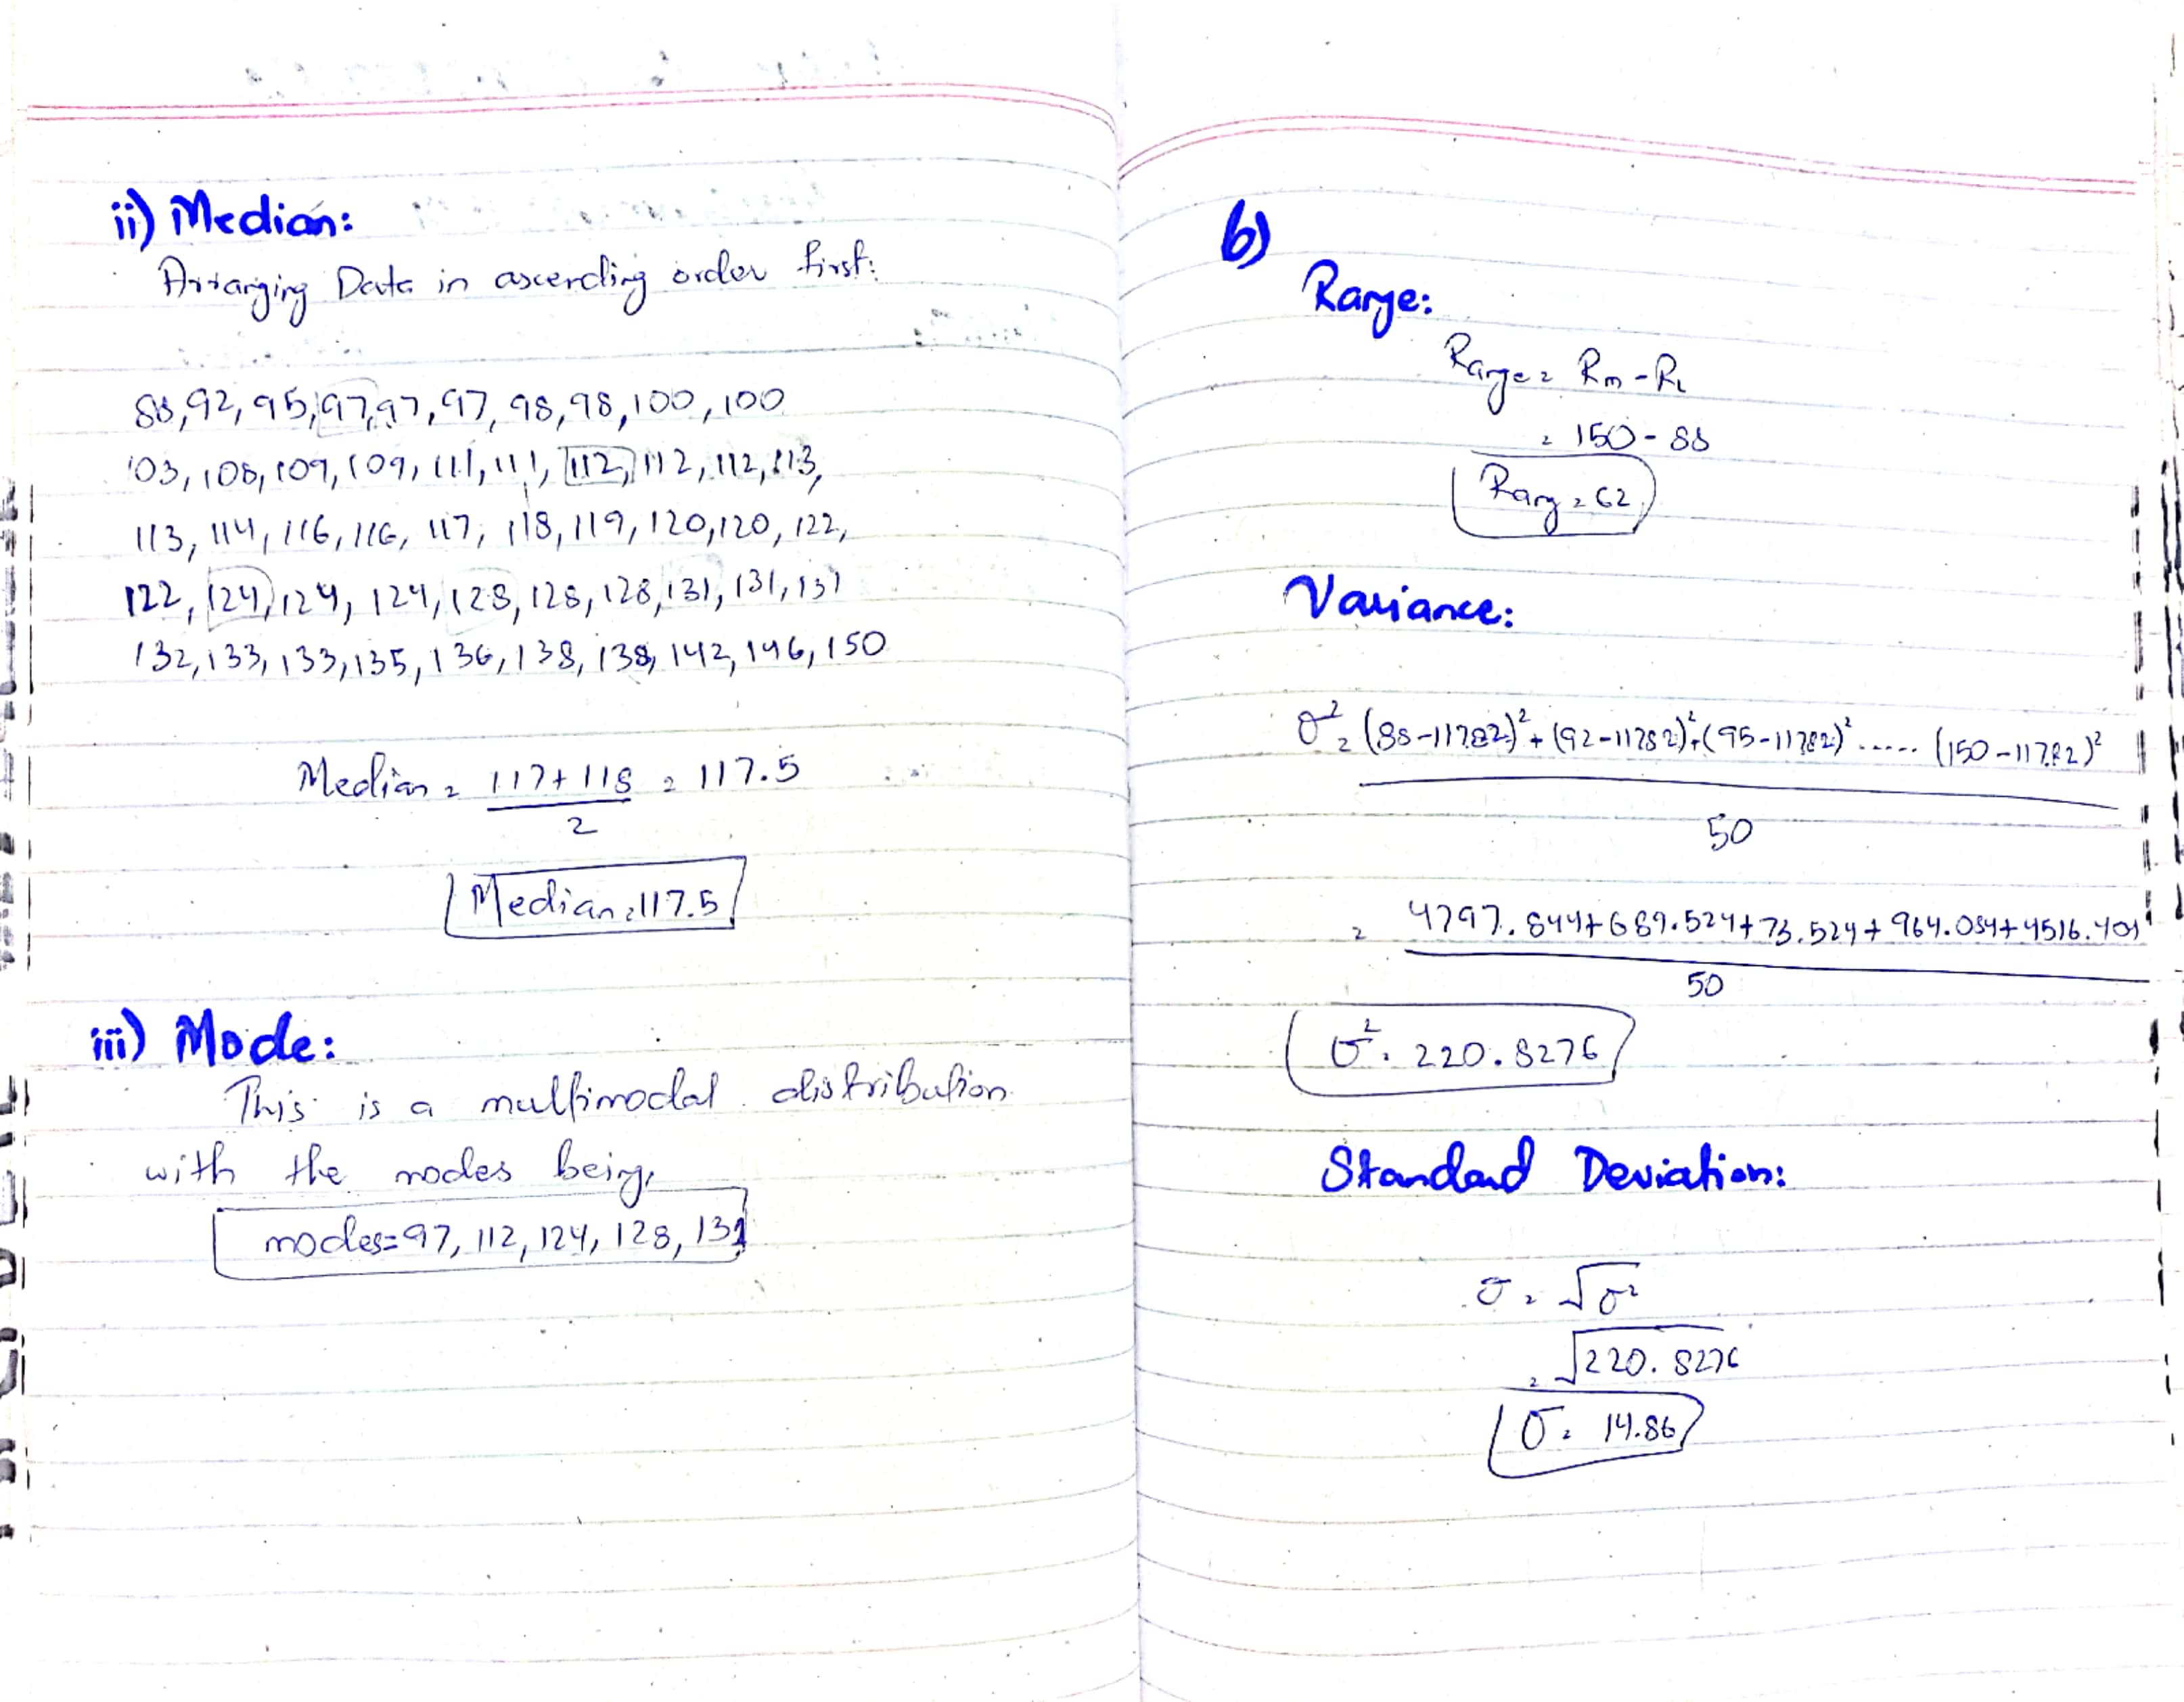 ii) Median:
Arranging Data in ascending order first:
88, 92, 95, 97, 97, 97, 98, 98, 100, 100
103, 108, 109, 109, 111, 111, 112, 112, 112, 113,
113, 114, 116, 116, 117, 118, 119, 120, 120, 122,
122, 124, 124, 124, 128, 128, 128, 131, 131, 131
132, 133, 133, 135, 136, 138, 138, 142, 146, 150
Median = 117+118 = 117.5
2
Median = 117.5
iii) Mode:
This is a multimodal distribution
with the modes being,
modes = 97, 112, 124, 128, 131
b)
Range:
Range = Rm - RL
= 150 - 88
Rang = 62
Variance:
σ² = (88-117.82)² + (92-117.82)² + (95-117.82)² ..... (150-117.82)²
50
= 4797.844 + 689.524 + 73.524 + 964.084 + 4516.401
50
σ² = 220.8276
Standard Deviation:
σ = √σ²
= √220.8276
σ = 14.86